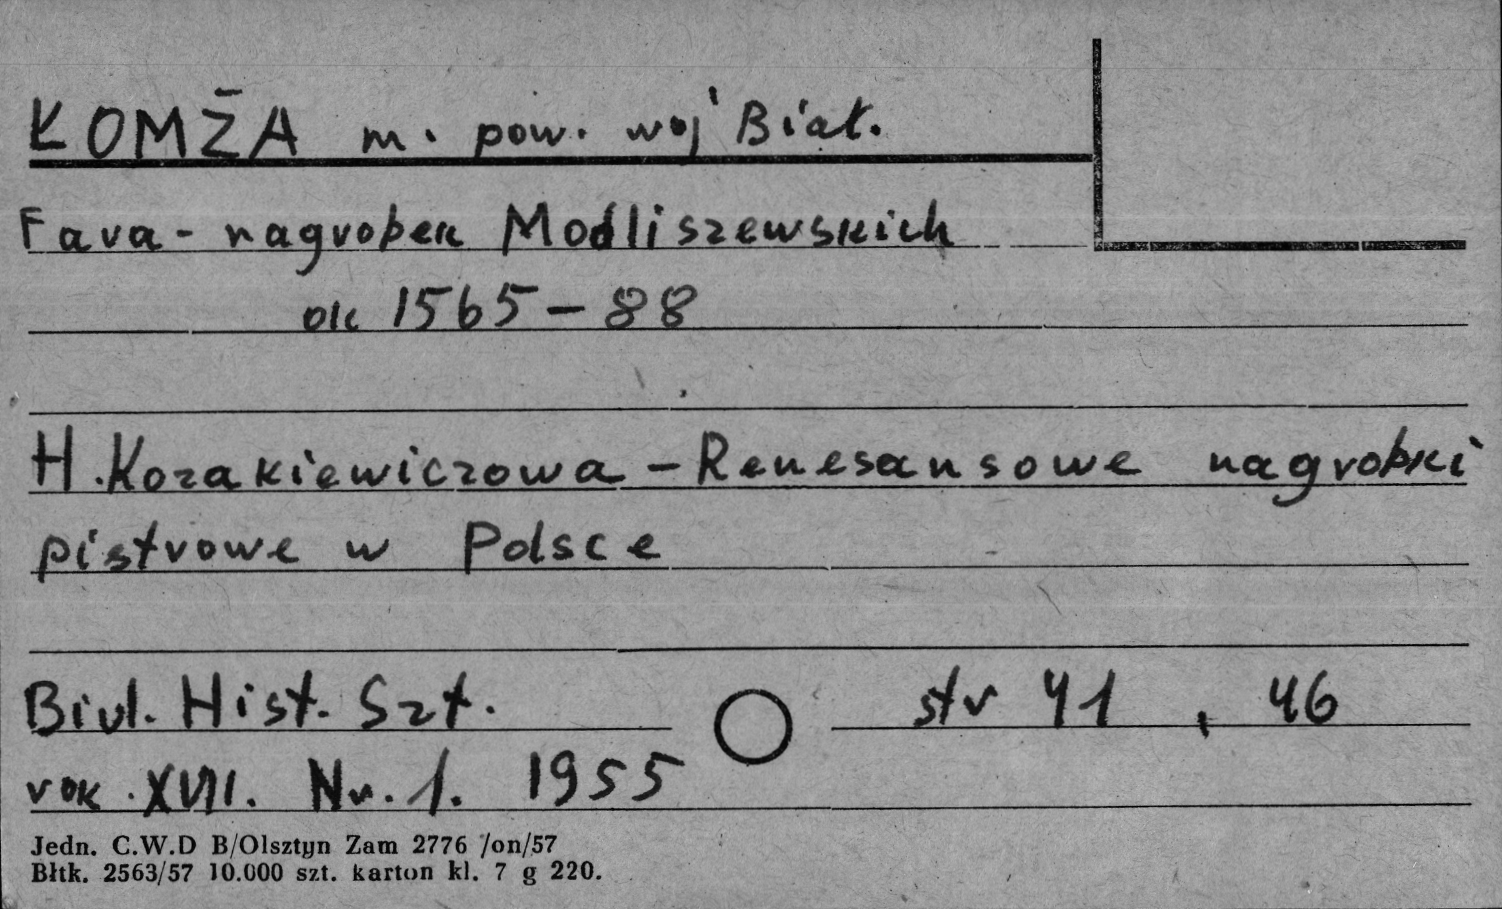 ŁOMŻA m. pow. woj Biał.
Fara - nagrobek Modliszewskich
ok 1565 - 88
H. Kozakiewiczowa - Renesansowe nagrobki
piętrowe w Polsce
Biul. Hist. Szt. str 41, 46
rok XVII. Nr. 1. 1955
Jedn. C.W.D B/Olsztyn Zam 2776 /on/57
Błtk. 2563/57 10.000 szt. karton kl. 7 g 220.